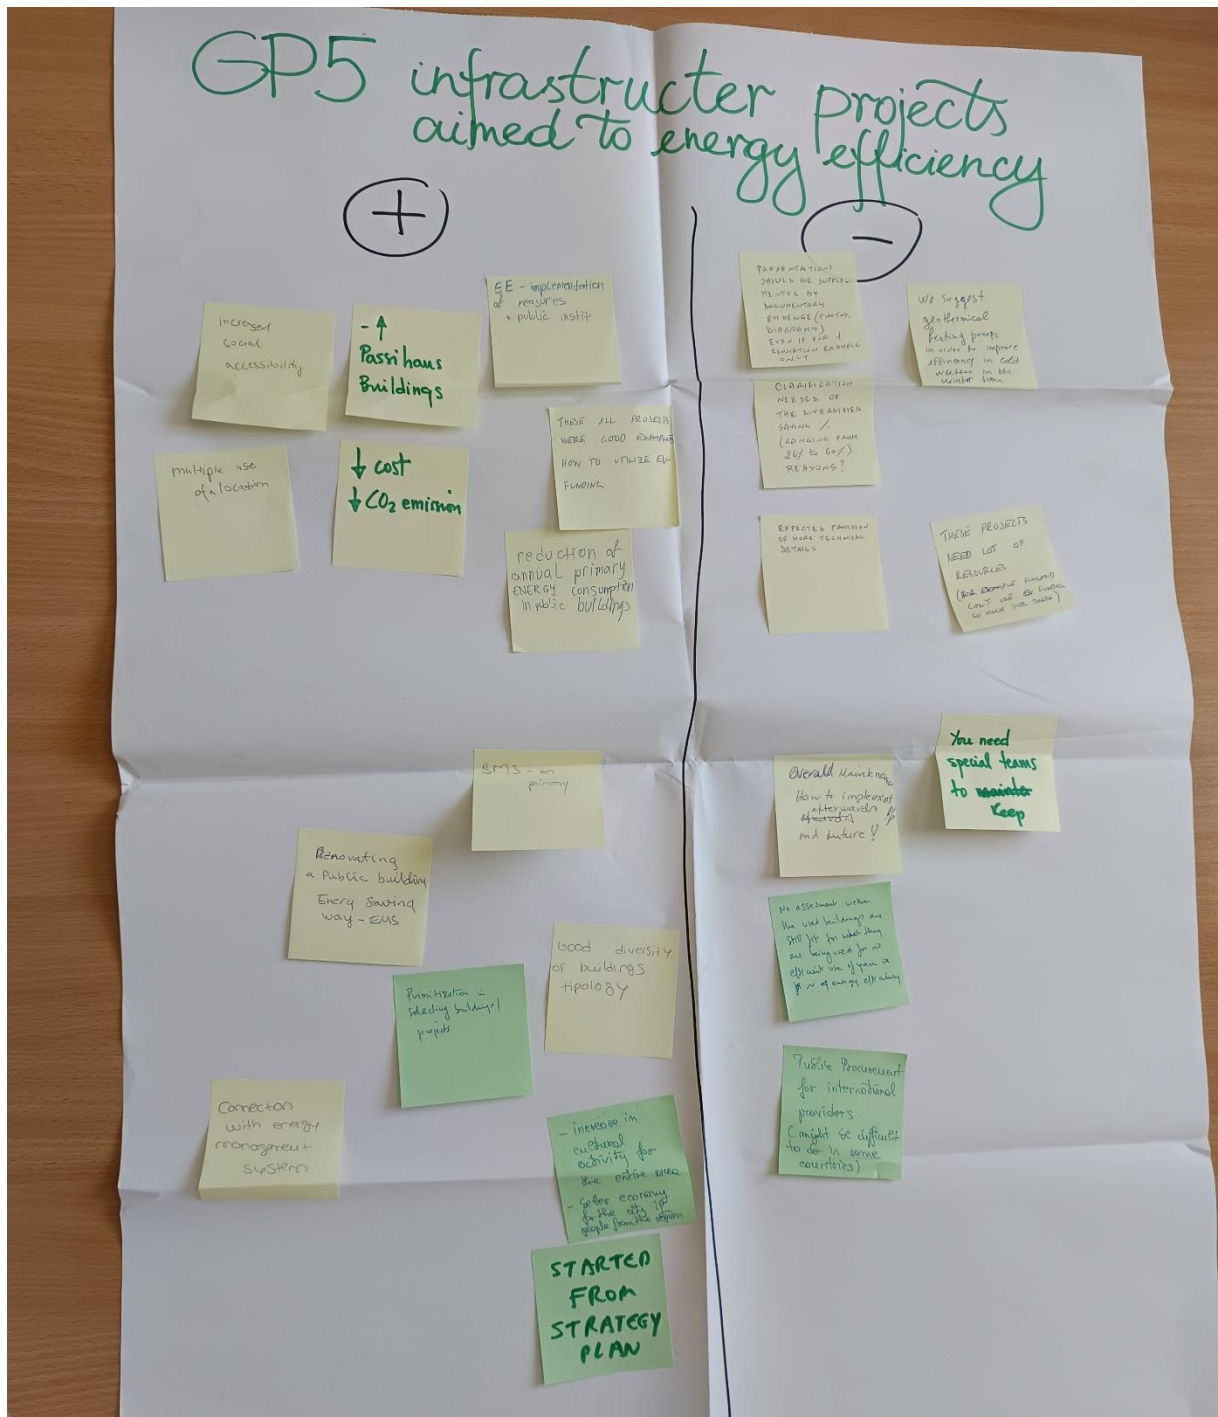 GP5 infrastructer projects
aimed to energy efficiency
+
increased
social
accessibility
- ↑
Passihaus
Buildings
EE - implementation
of measures
public instit
multiple use
of a location
↓ cost
↓ CO2 emission
THESE ALL PROJECTS
WERE GOOD EXAMPLES
HOW TO UTILIZE EU-
FUNDING
reduction of
annual primary
ENERGY consumption
in public buildings
BMS - on
primary
Renovating
a Public building
Energy Saving
way - EMS
Good diversity
of buildings
tipology
Prioritization in
selecting building/
projects
Connection
with energy
management
system
- increase in
cultural
activity for
the entire area
- better economy
for the city if
people from the region
STARTED
FROM
STRATEGY
PLAN
-
PRESENTATIONS
SHOULD BE SUPPLE-
MENTED BY
DOCUMENTARY
EVIDENCE (PHOTOS,
DIAGRAMS)
EVEN IF FOR 1
RENOVATION EXAMPLE
ONLY
we suggest
geothermical
heating pumps
in order to improve
efficiency in cold
weather in the
winter time
CLARIFICATION
NEEDED OF
THE DIVERSIFIED
SAVING %
(RANGING FROM
26% to 60%).
REASONS?
EXPECTED PROVISION
OF MORE TECHNICAL
DETAILS
THESE PROJECTS
NEED LOT OF
RESOURCES
(FOR EXAMPLE FINLAND
CAN'T USE EU FUNDING
SO MUCH FOR THESE)
Overald
How to implement
afterwards
and future!
You need
special teams
to
keep
No assesment wethen
the used buildings are
still fit for what they
are being used for
efficient use of
of energy efficiency
Public Procurement
for international
providers
(might be difficult
to do in some
countries)